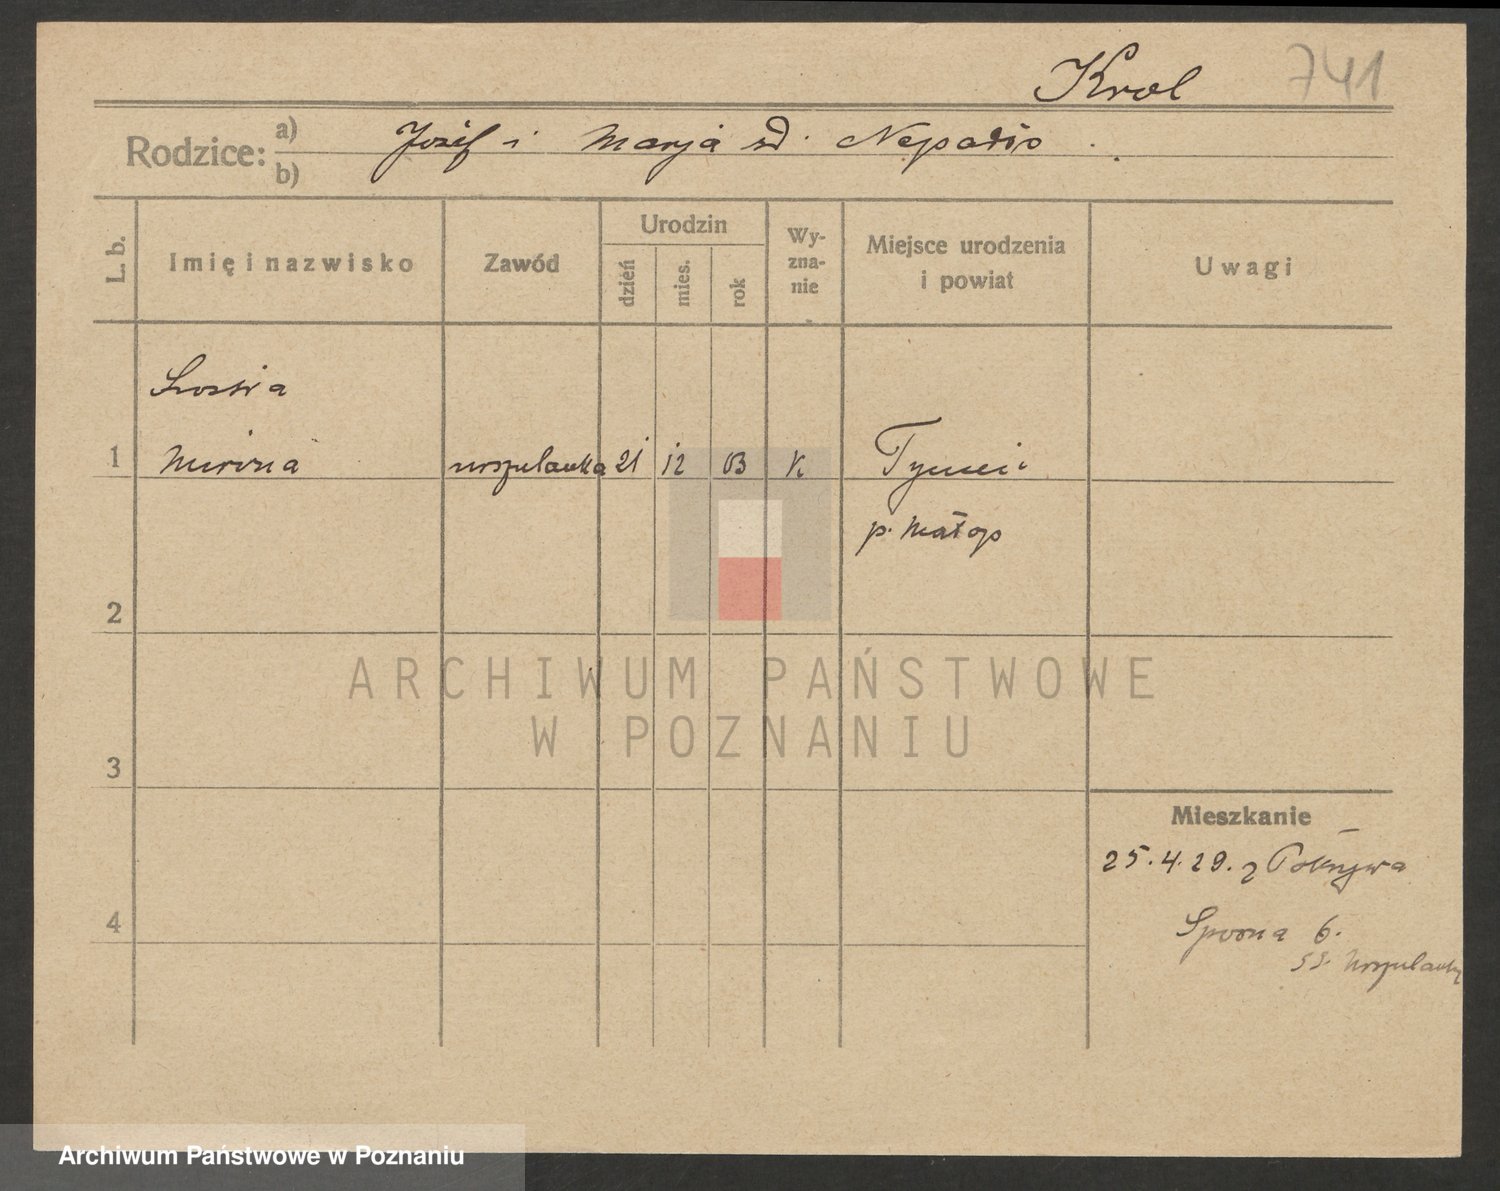 Krol 741
Rodzice: a) b) Józef i Marja
L. b.
Imię i nazwisko
Zawód
Urodzin
dzień
mies.
rok
Wy-
zna-
nie
Miejsce urodzenia
i powiat
Uwagi
Siostra
1 urszulanka 21 12 03 K
p. Małop
2
3
4
Mieszkanie
25.4.29. z Pokrywa
Sporna 6.
SS. Urszulanki
ARCHIWUM PAŃSTWOWE
W POZNANIU
Archiwum Państwowe w Poznaniu